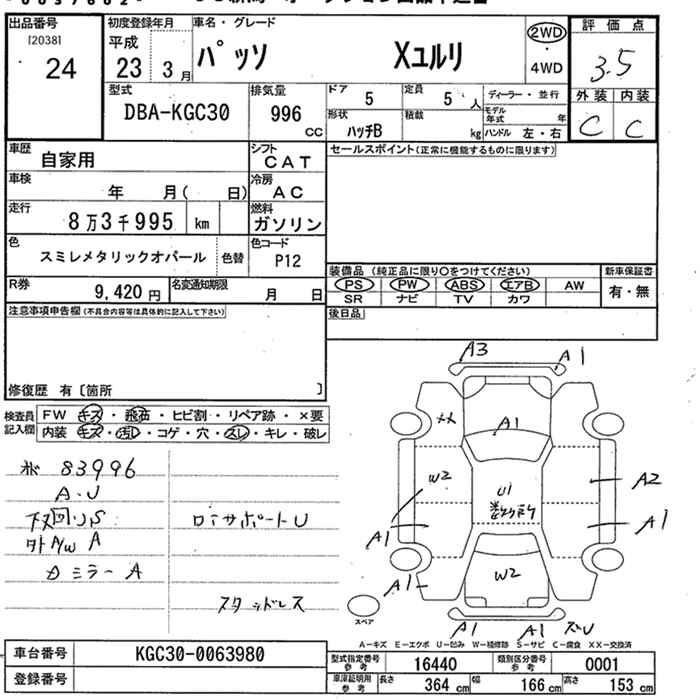 出品番号
[20381]
24
初度登録年月
平成
23 3月
車名・グレード
パッソ Xユルリ
2WD
・
4WD
評価点
3.5
外装 内装
C C
型式
DBA-KGC30
排気量
996
cc
ドア
5
定員
5人
ディーラー・並行
モデル年式 年
形状
ハッチB
積載
kg
ハンドル 左・右
車歴
自家用
シフト
CAT
セールスポイント(正常に機能するものに限ります)
車検
年 月( 日)
冷房
AC
走行
8万3千995 km
燃料
ガソリン
色
スミレメタリックオパール
色替
色コード
P12
装備品 (純正品に限り○をつけてください)
新車保証書
PS PW ABS エアB AW
SR ナビ TV カワ
有・無
R券
9,420円
名変通知期限
月 日
後日品
注意事項申告欄(不具合内容等は具体的に記入して下さい)
修復歴 有〔箇所 〕
検査員記入欄
FW キズ・飛石・ヒビ割・リペア跡・×要
内装 キズ・汚レ・コゲ・穴・スレ・キレ・破レ
83996
A・U
下廻りS
外A/W A
ミラーA
ロアサポートU
スタッドレス
A3
A1
XX
A1
W2
U1
A2
A1
A1
A1
W2
A1
A1
スペア
A=キズ E=エクボ U=凹み W=補修跡 S=サビ C=腐食 XX=交換済
車台番号
KGC30-0063980
登録番号
型式指定番号
参考
16440
類別区分番号
参考
0001
車庫証明用
参考
長さ
364cm
幅
166cm
高さ
153cm